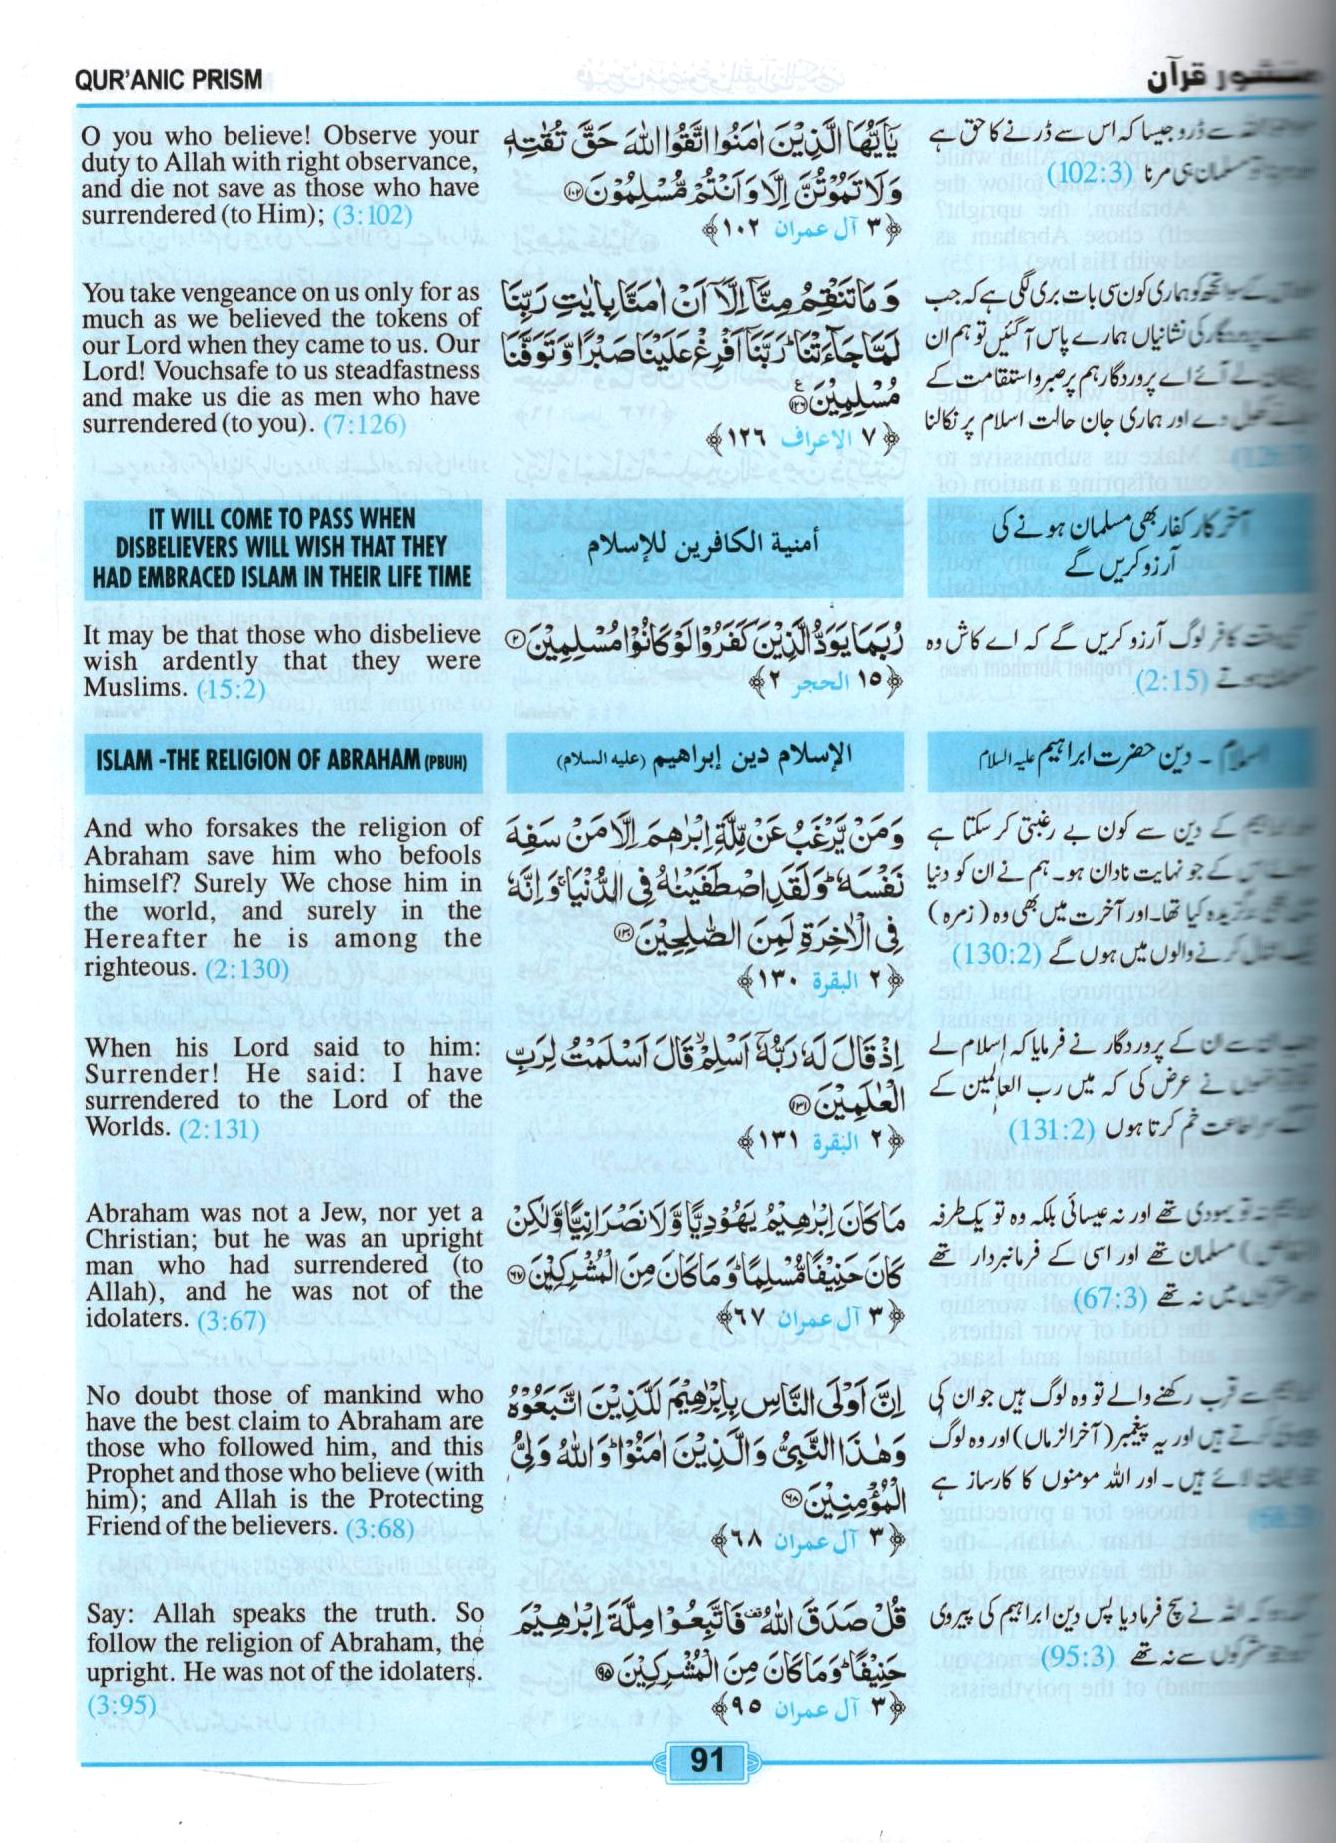 QUR'ANIC PRISM
قرآن
O you who believe! Observe your
duty to Allah with right observance,
and die not save as those who have
surrendered (to Him); (3:102)
يَٰٓأَيُّهَا الَّذِيْنَ اٰمَنُوا اتَّقُوا اللّٰهَ حَقَّ تُقٰتِهٖ
وَلَا تَمُوْتُنَّ اِلَّا وَاَنْتُمْ مُّسْلِمُوْنَ ﴿١٠٢﴾
﴿٣ آل عمران ١٠٢﴾
سے ڈرو جیسا کہ اس سے ڈرنے کا حق ہے
مسلمان ہی مرنا (102:3)
You take vengeance on us only for as
much as we believed the tokens of
our Lord when they came to us. Our
Lord! Vouchsafe to us steadfastness
and make us die as men who have
surrendered (to you). (7:126)
وَمَا تَنْقِمُ مِنَّآ اِلَّآ اَنْ اٰمَنَّا بِاٰيٰتِ رَبِّنَا
لَمَّا جَآءَتْنَا ؕ رَبَّنَآ اَفْرِغْ عَلَيْنَا صَبْرًا وَّتَوَفَّنَا
مُسْلِمِيْنَ ﴿١٢٦﴾
﴿٧ الاعراف ١٢٦﴾
ہماری کون سی بات بری لگی ہے کہ جب
کی نشانیاں ہمارے پاس آ گئیں تو ہم ان
لے آئے اے پروردگار ہم پر صبر و استقامت کے
دے اور ہماری جان حالت اسلام پر نکالنا
IT WILL COME TO PASS WHEN
DISBELIEVERS WILL WISH THAT THEY
HAD EMBRACED ISLAM IN THEIR LIFE TIME
أمنية الكافرين للإسلام
آخر کار کفار بھی مسلمان ہونے کی
آرزو کریں گے
It may be that those who disbelieve
wish ardently that they were
Muslims. (15:2)
رُبَمَا يَوَدُّ الَّذِيْنَ كَفَرُوْا لَوْ كَانُوْا مُسْلِمِيْنَ ﴿٢﴾
﴿١٥ الحجر ٢﴾
وقت کافر لوگ آرزو کریں گے کہ اے کاش وہ
ہوتے (2:15)
ISLAM -THE RELIGION OF ABRAHAM (PBUH)
الإسلام دين إبراهيم (عليه السلام)
اسلام - دین حضرت ابراہیم علیہ السلام
And who forsakes the religion of
Abraham save him who befools
himself? Surely We chose him in
the world, and surely in the
Hereafter he is among the
righteous. (2:130)
وَمَنْ يَّرْغَبُ عَنْ مِّلَّةِ اِبْرٰهٖمَ اِلَّا مَنْ سَفِهَ
نَفْسَهٗ ؕ وَلَقَدِ اصْطَفَيْنٰهُ فِى الدُّنْيَا ۚ وَاِنَّهٗ
فِى الْاٰخِرَةِ لَمِنَ الصّٰلِحِيْنَ ﴿١٣٠﴾
﴿٢ البقرة ١٣٠﴾
کے دین سے کون بے رغبتی کر سکتا ہے
کے جو نہایت نادان ہو۔ ہم نے ان کو دنیا
کیا تھا۔ اور آخرت میں بھی وہ (زمرہ)
کرنے والوں میں ہوں گے (130:2)
When his Lord said to him:
Surrender! He said: I have
surrendered to the Lord of the
Worlds. (2:131)
اِذْ قَالَ لَهٗ رَبُّهٗٓ اَسْلِمْ ۙ قَالَ اَسْلَمْتُ لِرَبِّ
الْعٰلَمِيْنَ ﴿١٣١﴾
﴿٢ البقرة ١٣١﴾
سے ان کے پروردگار نے فرمایا کہ اسلام لے
نے عرض کی کہ میں رب العالمین کے
اطاعت خم کرتا ہوں (131:2)
Abraham was not a Jew, nor yet a
Christian; but he was an upright
man who had surrendered (to
Allah), and he was not of the
idolaters. (3:67)
مَا كَانَ اِبْرٰهِيْمُ يَهُوْدِيًّا وَّلَا نَصْرَانِيًّا وَّلٰكِنْ
كَانَ حَنِيْفًا مُّسْلِمًا ؕ وَمَا كَانَ مِنَ الْمُشْرِكِيْنَ ﴿٦٧﴾
﴿٣ آل عمران ٦٧﴾
نہ تو یہودی تھے اور نہ عیسائی بلکہ وہ تو یک طرفہ
مسلمان تھے اور اسی کے فرمانبردار تھے
میں نہ تھے (67:3)
No doubt those of mankind who
have the best claim to Abraham are
those who followed him, and this
Prophet and those who believe (with
him); and Allah is the Protecting
Friend of the believers. (3:68)
اِنَّ اَوْلَى النَّاسِ بِاِبْرٰهِيْمَ لَلَّذِيْنَ اتَّبَعُوْهُ
وَهٰذَا النَّبِىُّ وَالَّذِيْنَ اٰمَنُوْا ؕ وَاللّٰهُ وَلِىُّ
الْمُؤْمِنِيْنَ ﴿٦٨﴾
﴿٣ آل عمران ٦٨﴾
سے قرب رکھنے والے تو وہ لوگ ہیں جو ان کی
کرتے ہیں اور یہ پیغمبر (آخر الزماں) اور وہ لوگ
لائے ہیں۔ اور اللہ مومنوں کا کارساز ہے
Say: Allah speaks the truth. So
follow the religion of Abraham, the
upright. He was not of the idolaters.
(3:95)
قُلْ صَدَقَ اللّٰهُ ۗ فَاتَّبِعُوْا مِلَّةَ اِبْرٰهِيْمَ
حَنِيْفًا ؕ وَمَا كَانَ مِنَ الْمُشْرِكِيْنَ ﴿٩٥﴾
﴿٣ آل عمران ٩٥﴾
کہ اللہ نے سچ فرما دیا پس دین ابراہیم کی پیروی
مشرکوں سے نہ تھے (95:3)
91